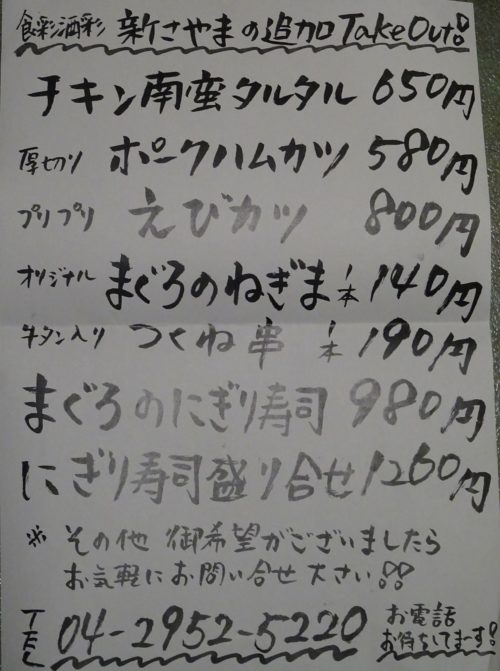 食彩酒彩 新さやまの追加TakeOut!!
チキン南蛮タルタル 650円
厚切り ポークハムカツ 580円
プリプリ えびカツ 800円
オリジナル まぐろのねぎま 1本 140円
牛タン入り つくね串 1本 190円
まぐろのにぎり寿司 980円
にぎり寿司盛り合せ 1260円
※ その他 御希望がございましたら
お気軽にお問い合せ下さい!!
TEL 04-2952-5220 お電話
お待ちしてまーす!